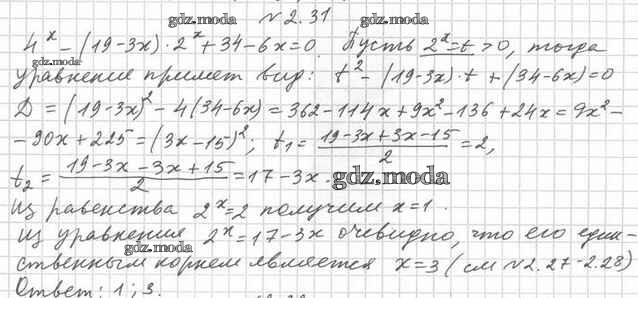 №2.31
gdz.moda gdz.moda
4^x − (19−3x)·2^x + 34−6x=0. Пусть 2^x=t>0, тогда
gdz.moda
уравнение примет вид: t²−(19−3x)·t+(34−6x)=0
D=(19−3x)²−4(34−6x)=362−114x+9x²−136+24x=9x²−
−90x+225=(3x−15)²; t₁=(19−3x+3x−15)/2=2,
t₂=(19−3x−3x+15)/2=17−3x.
gdz.moda
Из равенства 2^x=2 получим x=1.
Из уравнения 2^x=17−3x очевидно, что его един-
gdz.moda
ственным корнем является x=3 (см №2.27−2.28)
gdz.moda
Ответ: 1; 3.